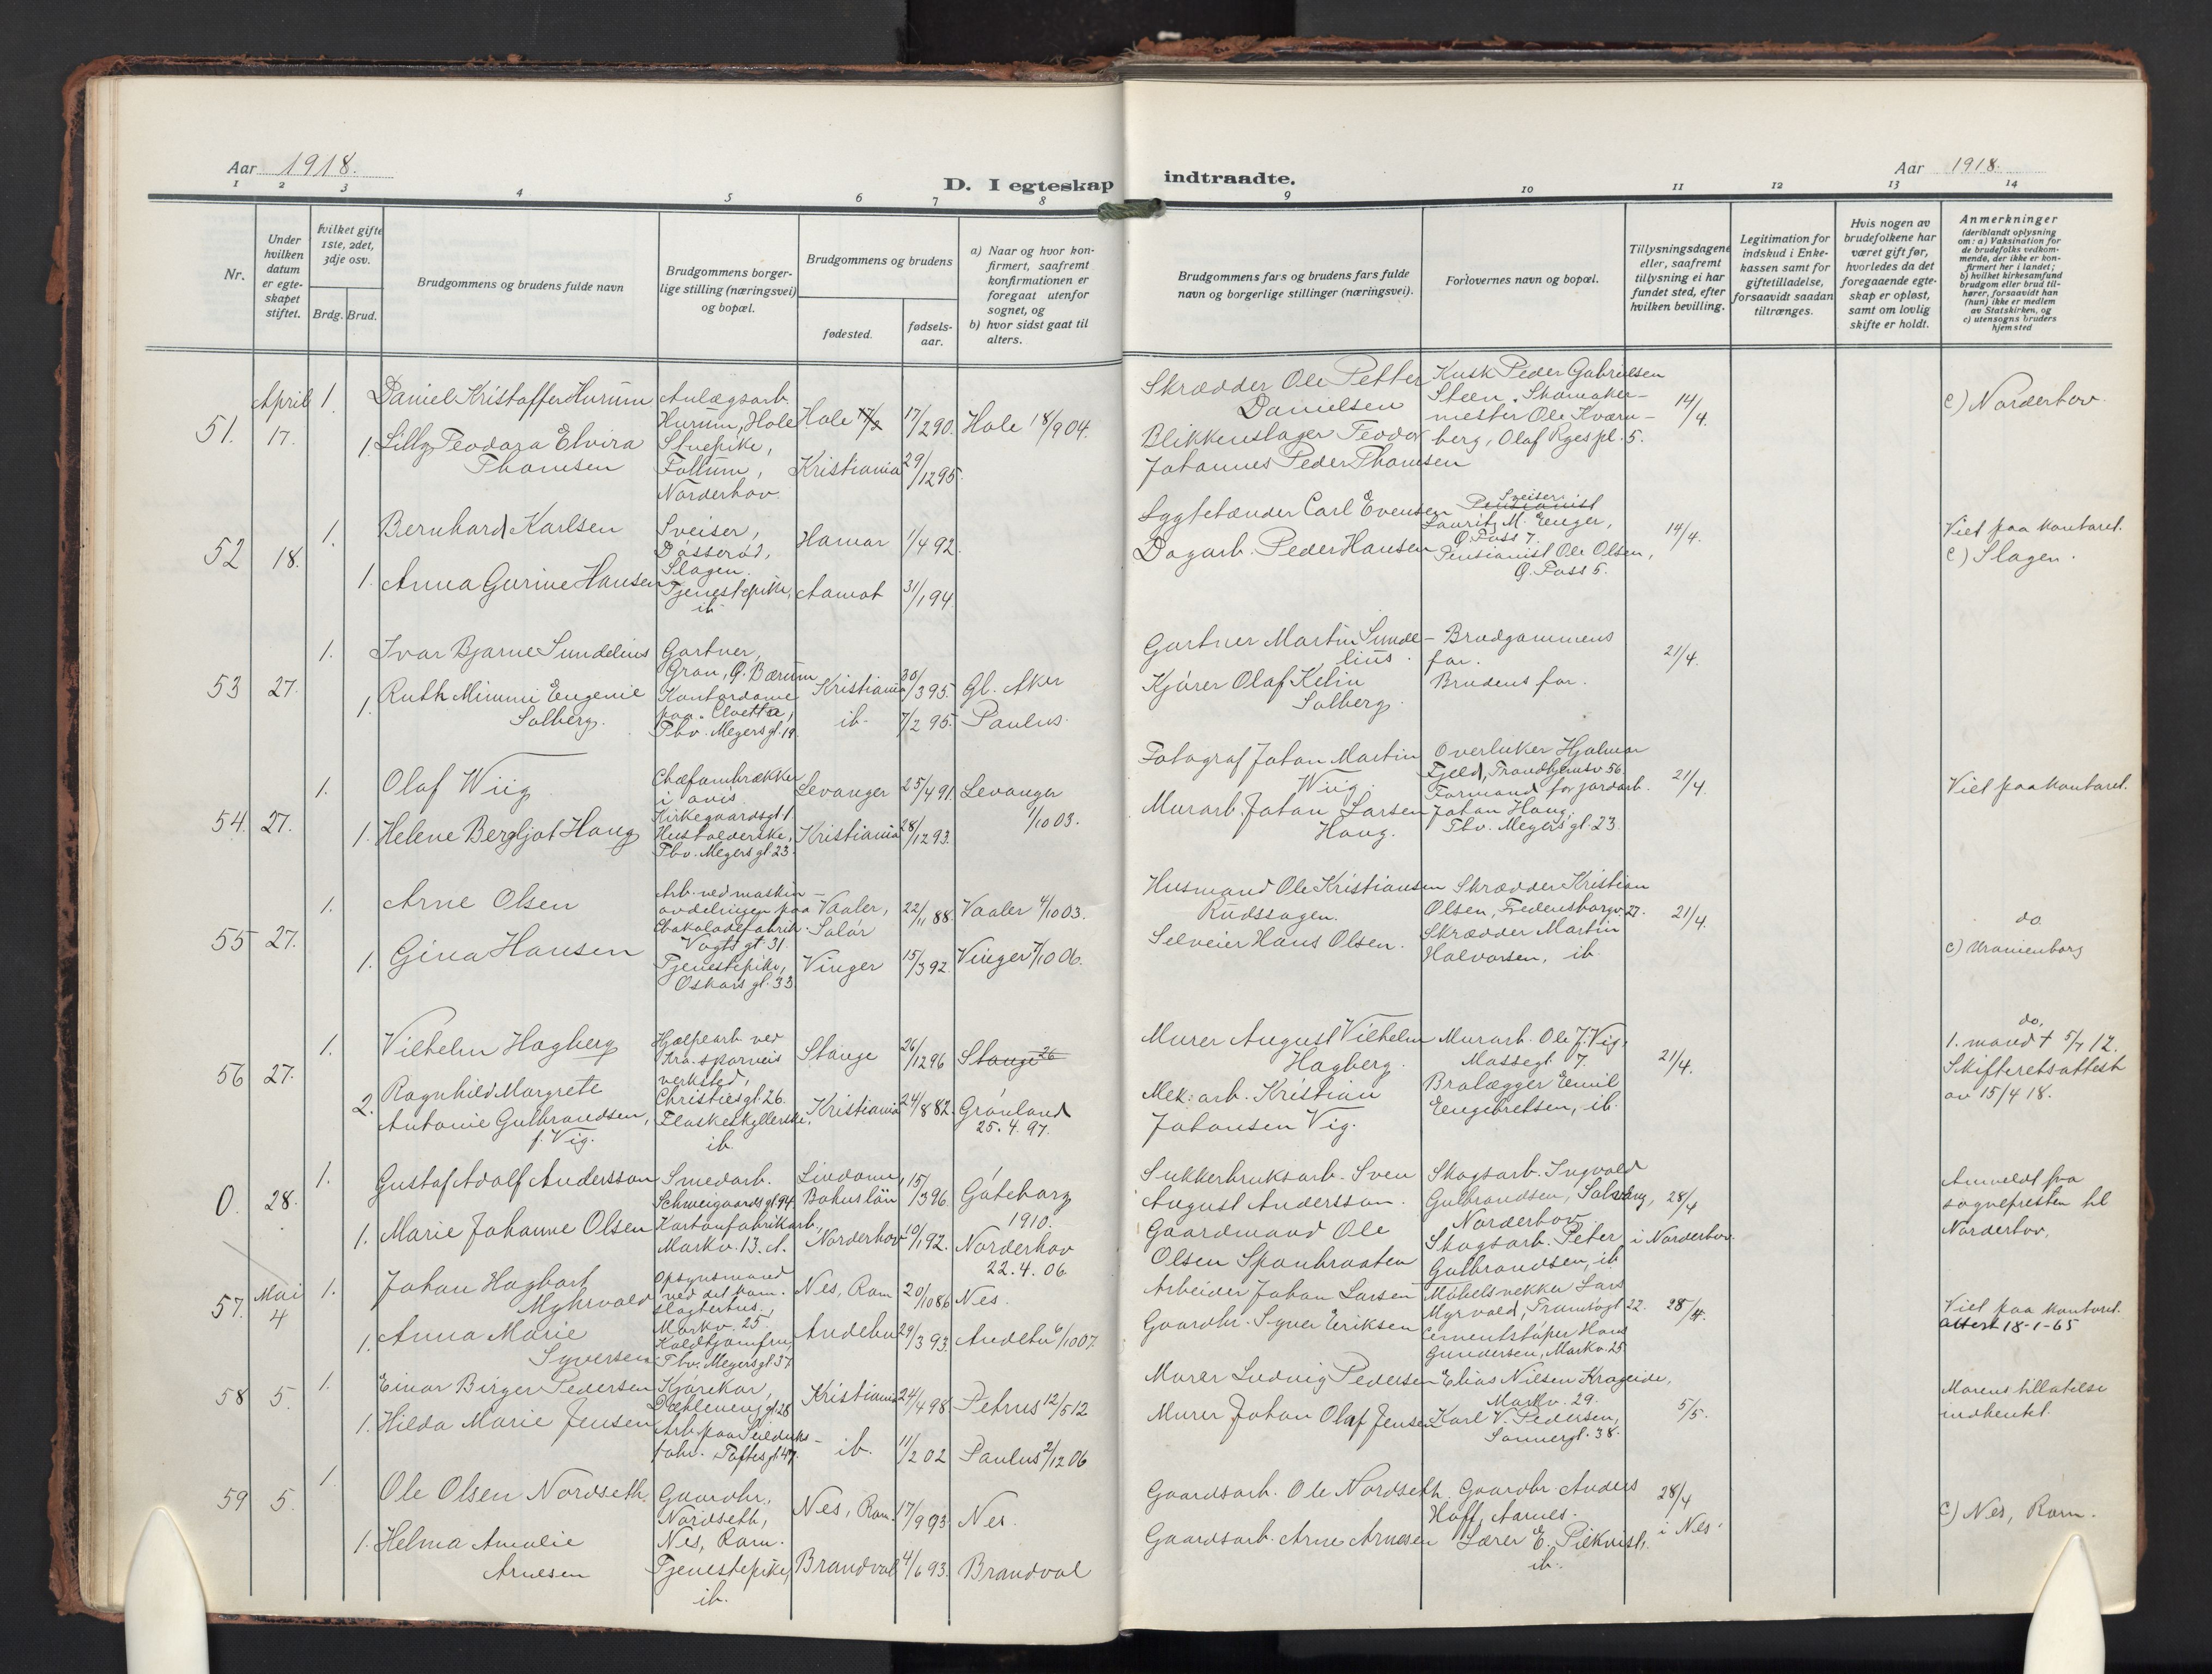 Aar 1918.
D. I egteskap indtraadte.
Aar 1918.
1 2 3 4 5 6 7 8 9 10 11 12 13 14
Nr.
Under hvilken datum er egteskapet stiftet.
hvilket gifte 1ste, 2det, 3dje osv.
Brdg. Brud.
Brudgommens og brudens fulde navn
Brudgommens borgerlige stilling (næringsvei) og bopæl.
Brudgommens og brudens
fødested.
fødselsaar.
a) Naar og hvor konfirmert, saafremt konfirmationen er foregaat utenfor sognet, og
b) hvor sidst gaat til alters.
Brudgommens fars og brudens fars fulde navn og borgerlige stillinger (næringsvei).
Forlovernes navn og bopæl.
Tillysningsdagene eller, saafremt tillysning ei har fundet sted, efter hvilken bevilling.
Legitimation for indskud i Enkekassen samt for giftetilladelse, forsaavidt saadan tiltrænges.
Hvis nogen av brudefolkene har været gift før, hvorledes da det foregaaende egteskap er opløst, samt om lovlig skifte er holdt.
Anmerkninger
(deriblandt oplysning om: a) Vaksination for de brudefolks vedkommende, der ikke er konfirmert her i landet; b) hvilket kirkesamfund brudgom eller brud tilhører, forsaavidt han (hun) ikke er medlem av Statskirken, og c) utensogns bruders hjemsted
51. April 17.
1. Daniel Kristoffer Hurum
Anlægsarb. Hurum, Hole
Hole 17/2 90. Hole 18/9 04.
Skrædder Ole Petter Danielsen
Kusk Peder Gabrielsen Steen. Skomakermester Ole Kværnberg, Olaf Ryes pl. 5.
14/4.
c) Norderhov.
1. Lilly Teodora Elvira Thomsen
Stuepike, Follum, Norderhov.
Kristiania 29/12 95.
Blikkenslager Teodor Johannes Peder Thomsen
52 18.
1. Bernhard Karlsen
Sveiser, Slagen.
Hamar 1/4 92.
Lygtetænder Carl Evensen
Sveiser Pensionist Lauritz M. Enger, Q. Pass 7.
Pensionist Ole Olsen, Q. Pass 5.
14/4.
Viet paa kontoret.
c) Slagen.
1. Anna Gurine Hansen
Tjenestepike, ib.
Aamot 31/1 94.
Dagarb. Peder Hansen
53 27.
1. Ivar Bjarne Sundelius
Gartner, Gran, Ø. Bærum
Kristiania 30/3 95. Gl. Aker
Gartner Martin Sundelius.
Brudgommens far.
21/4.
1. Ruth Mimmi Eugenie Solberg.
Kontordame paa Cloetta, Thv. Meyersgt. 19.
ib. 7/2 95. Paulus.
Kjører Olaf Kelin Solberg.
Brudens far.
54. 27.
1. Olaf Wiig
i avis. Kirkegaardsgt 1
Levanger 25/4 91. Levanger 1/10 03.
Fotograf Johan Martin Wiig.
Hjalmar Fjeld, Trondhjemsv 56.
Formand for jordarb. Johan Haug, Thv. Meyers gt. 23.
21/4.
Viet paa kontoret.
1. Helene Bergljot Haug
Husholderske, Thv. Meyers gt 23.
Kristiania 28/12 93.
Murarb. Johan Larsen Haug.
55 27.
1. Arne Olsen
Arb. ved maskinavdelingen paa Chokoladefabrik. Vogts gt. 31.
Vaaler, Solør 22/11 88. Vaaler 4/10 03.
Husmand Ole Kristiansen Rudssagen.
Skrædder Kristian Olsen, Fredensborgv. 27.
Skrædder Martin Halvorsen, ib.
21/4.
do.
c) Uranienborg
1. Gina Hansen
Tjenestepike, Oskars gt. 33.
Vinger 15/3 92. Vinger 7/10 06.
Selveier Hans Olsen.
56 27.
1. Vilhelm Hagberg
Hjælpearb. ved Kra. sporveis verksted, Christies gt. 26.
Stange 26/12 96 Stange 26
Murer August Vilhelm Hagberg.
Murarb. Ole J. Vig. Mossegt 7.
Brolægger Emil Engebretsen, ib.
21/4.
do.
1. mand † 5/7 12. Skifteretsattest av 15/4 18.
2. Ragnhild Margrete Antonie Gulbrandsen, f. Vig.
Flaskeskyllerske, ib.
Kristiania 24/8 82. Grønland 25.4.97.
Mek. arb. Kristian Johansen Vig.
0. 28.
1. Gustaf Adolf Andersson
Smedarb. Schweigaards gt 94.
Lindome, Bohuslän 15/3 96. Göteborg 1910.
Sukkerbruksarb. Sven August Andersson.
Skogsarb. Ingvald Gulbrandsen, Norderhov
Skogsarb. Peter Gulbrandsen, ib
28/4 i Norderhov.
Anmeldt fra sogneprestern til Norderhov.
1. Marie Johanne Olsen
Kartonfabrikarb. Markv. 13. d.
Norderhov 10/1 92. Norderhov 22.4.06.
Gaardmand Ole Olsen Sponbraaten
57. Mai 4
1. Johan Hagbart Myhrvold
Opsynsmand ved det kom. slagtehus, Markv. 25.
Nes, Rom 20/10 86 Nes.
Arbeider Johan Larsen
Lars Myrvold, Framsogt 22.
Cementstøper Hans Gundersen, Markv. 25
28/4.
Viet paa kontoret.
Attest 18-1-65
1. Anna Marie Syversen
Koldtjomfru, Thv. Meyersgt 37.
Andebu 29/3 93. Andebu 6/10 07.
Gaardbr. Syver Eriksen
58 5.
1. Einar Birger Pedersen
Kjørekar, Dæhlenenggt. 28
Kristiania 24/4 98. Petrus 12/5 12
Murer Ludvig Pedersen
Elias Nilsen Krogeide, Markv. 29.
Karl V. Pedersen, Sannergt. 38.
5/5.
Morens tillatelse indhentet.
1. Hilda Marie Jensen
Arb. paa Seilduksfabr. Toftes gt 47.
ib. 11/2 02 Paulus 2/12 06
Murer Johan Olaf Jensen
59 5.
1. Ole Olsen Nordseth.
Gaardbr., Nordseth, Nes, Rom.
Nes, Rom. 17/9 93. Nes.
Gaardsarb. Ole Nordseth.
Gaardbr. Anders Hoff, Aarnes.
Lærer E. Piekvist, ib.
28/4 i Nes.
c) Nes, Rom.
1. Helma Amalie Arnesen
Tjenestepike, ib.
Brandval 4/6 93. Brandval
Gaardsarb. Arne Arnesen